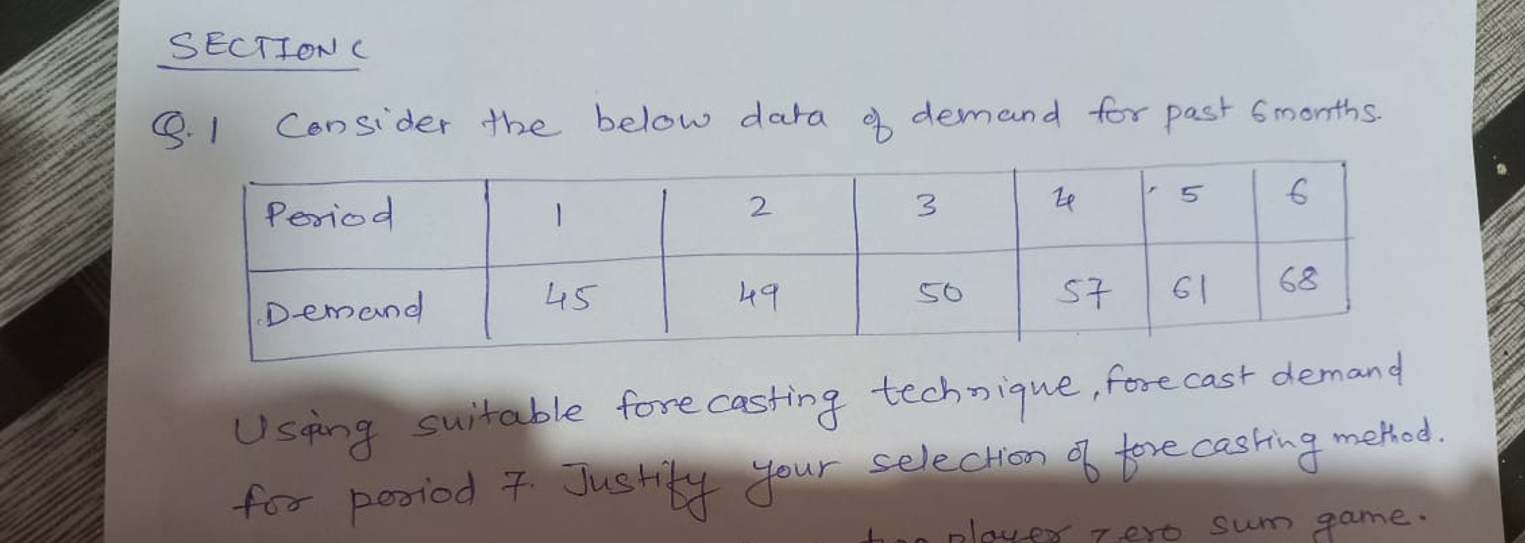 SECTION C
Q.1 Consider the below data of demand for past 6 months.
Period 1 2 3 4 5 6
Demand 45 49 50 57 61 68
Using suitable forecasting technique, forecast demand
for period 7. Justify your selection of forecasting method.
player zero sum game.